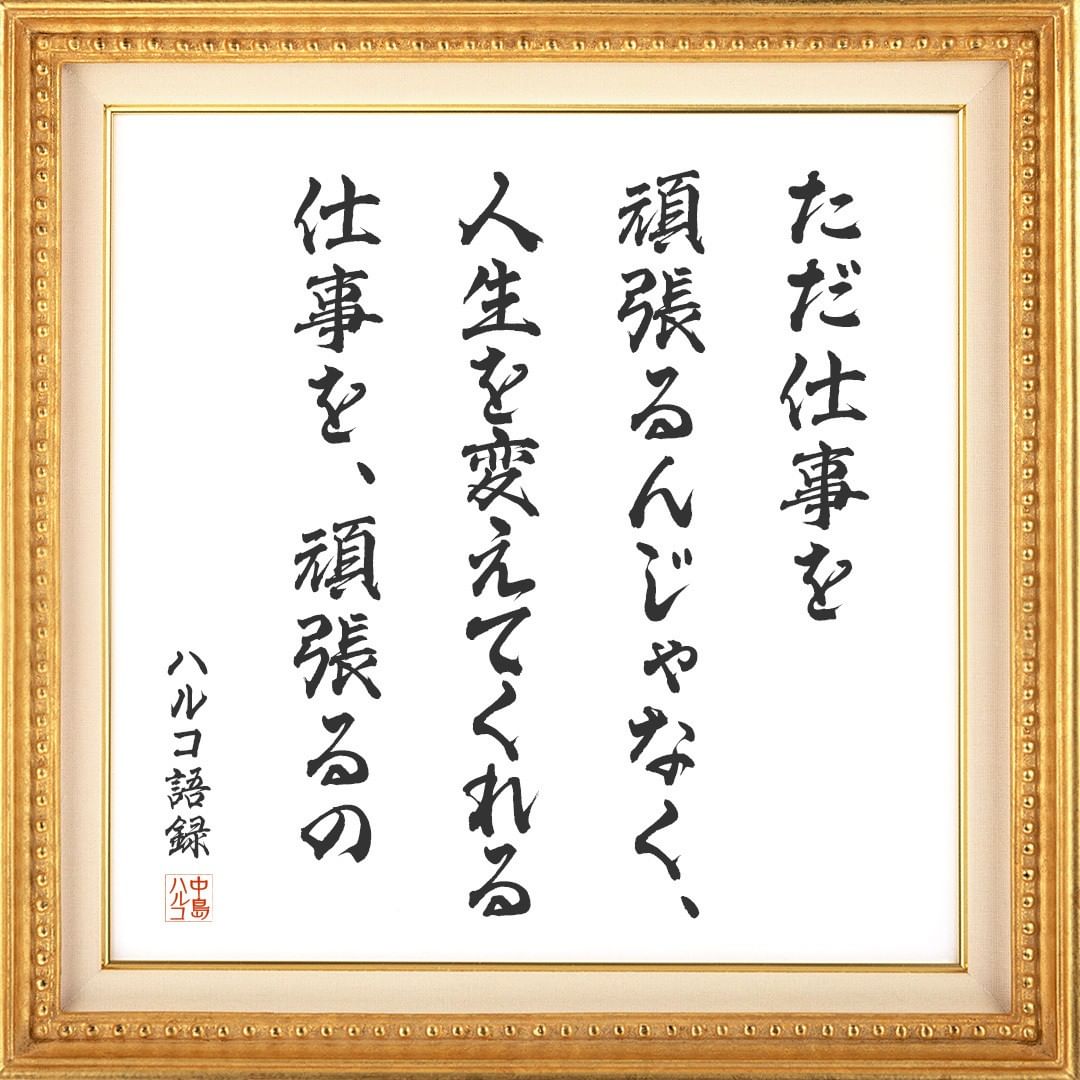 ただ仕事を
頑張るんじゃなく、
人生を変えてくれる
仕事を、頑張るの
ハルコ語録
中島
ハルコ